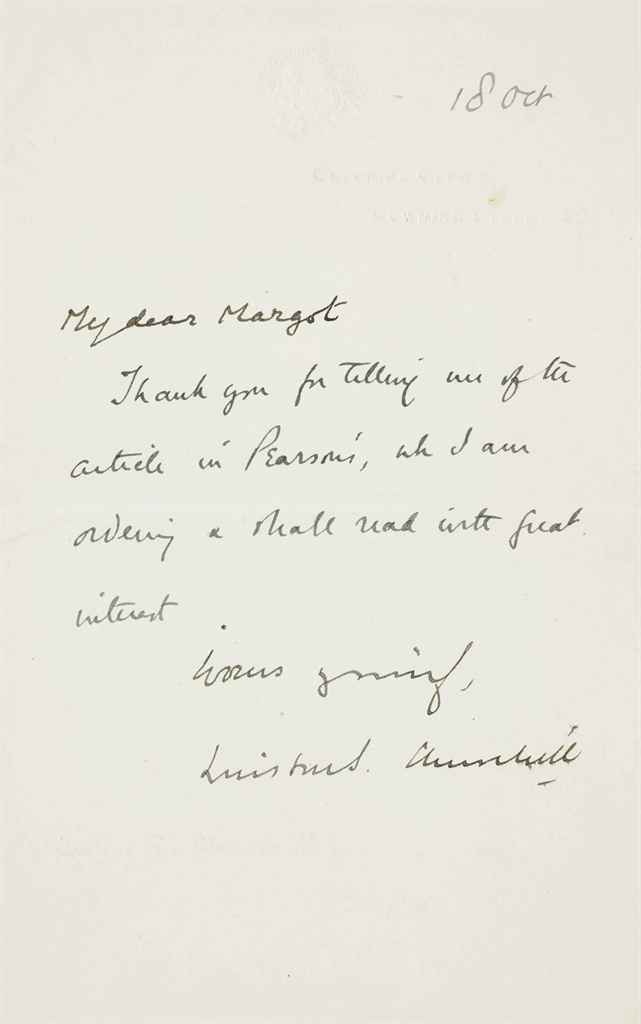 18 Oct
My dear Margot
Thank you for telling me of the
article in Pearson's, wh I am
ordering & shall read with great
interest
Yours
Winston S. Churchill